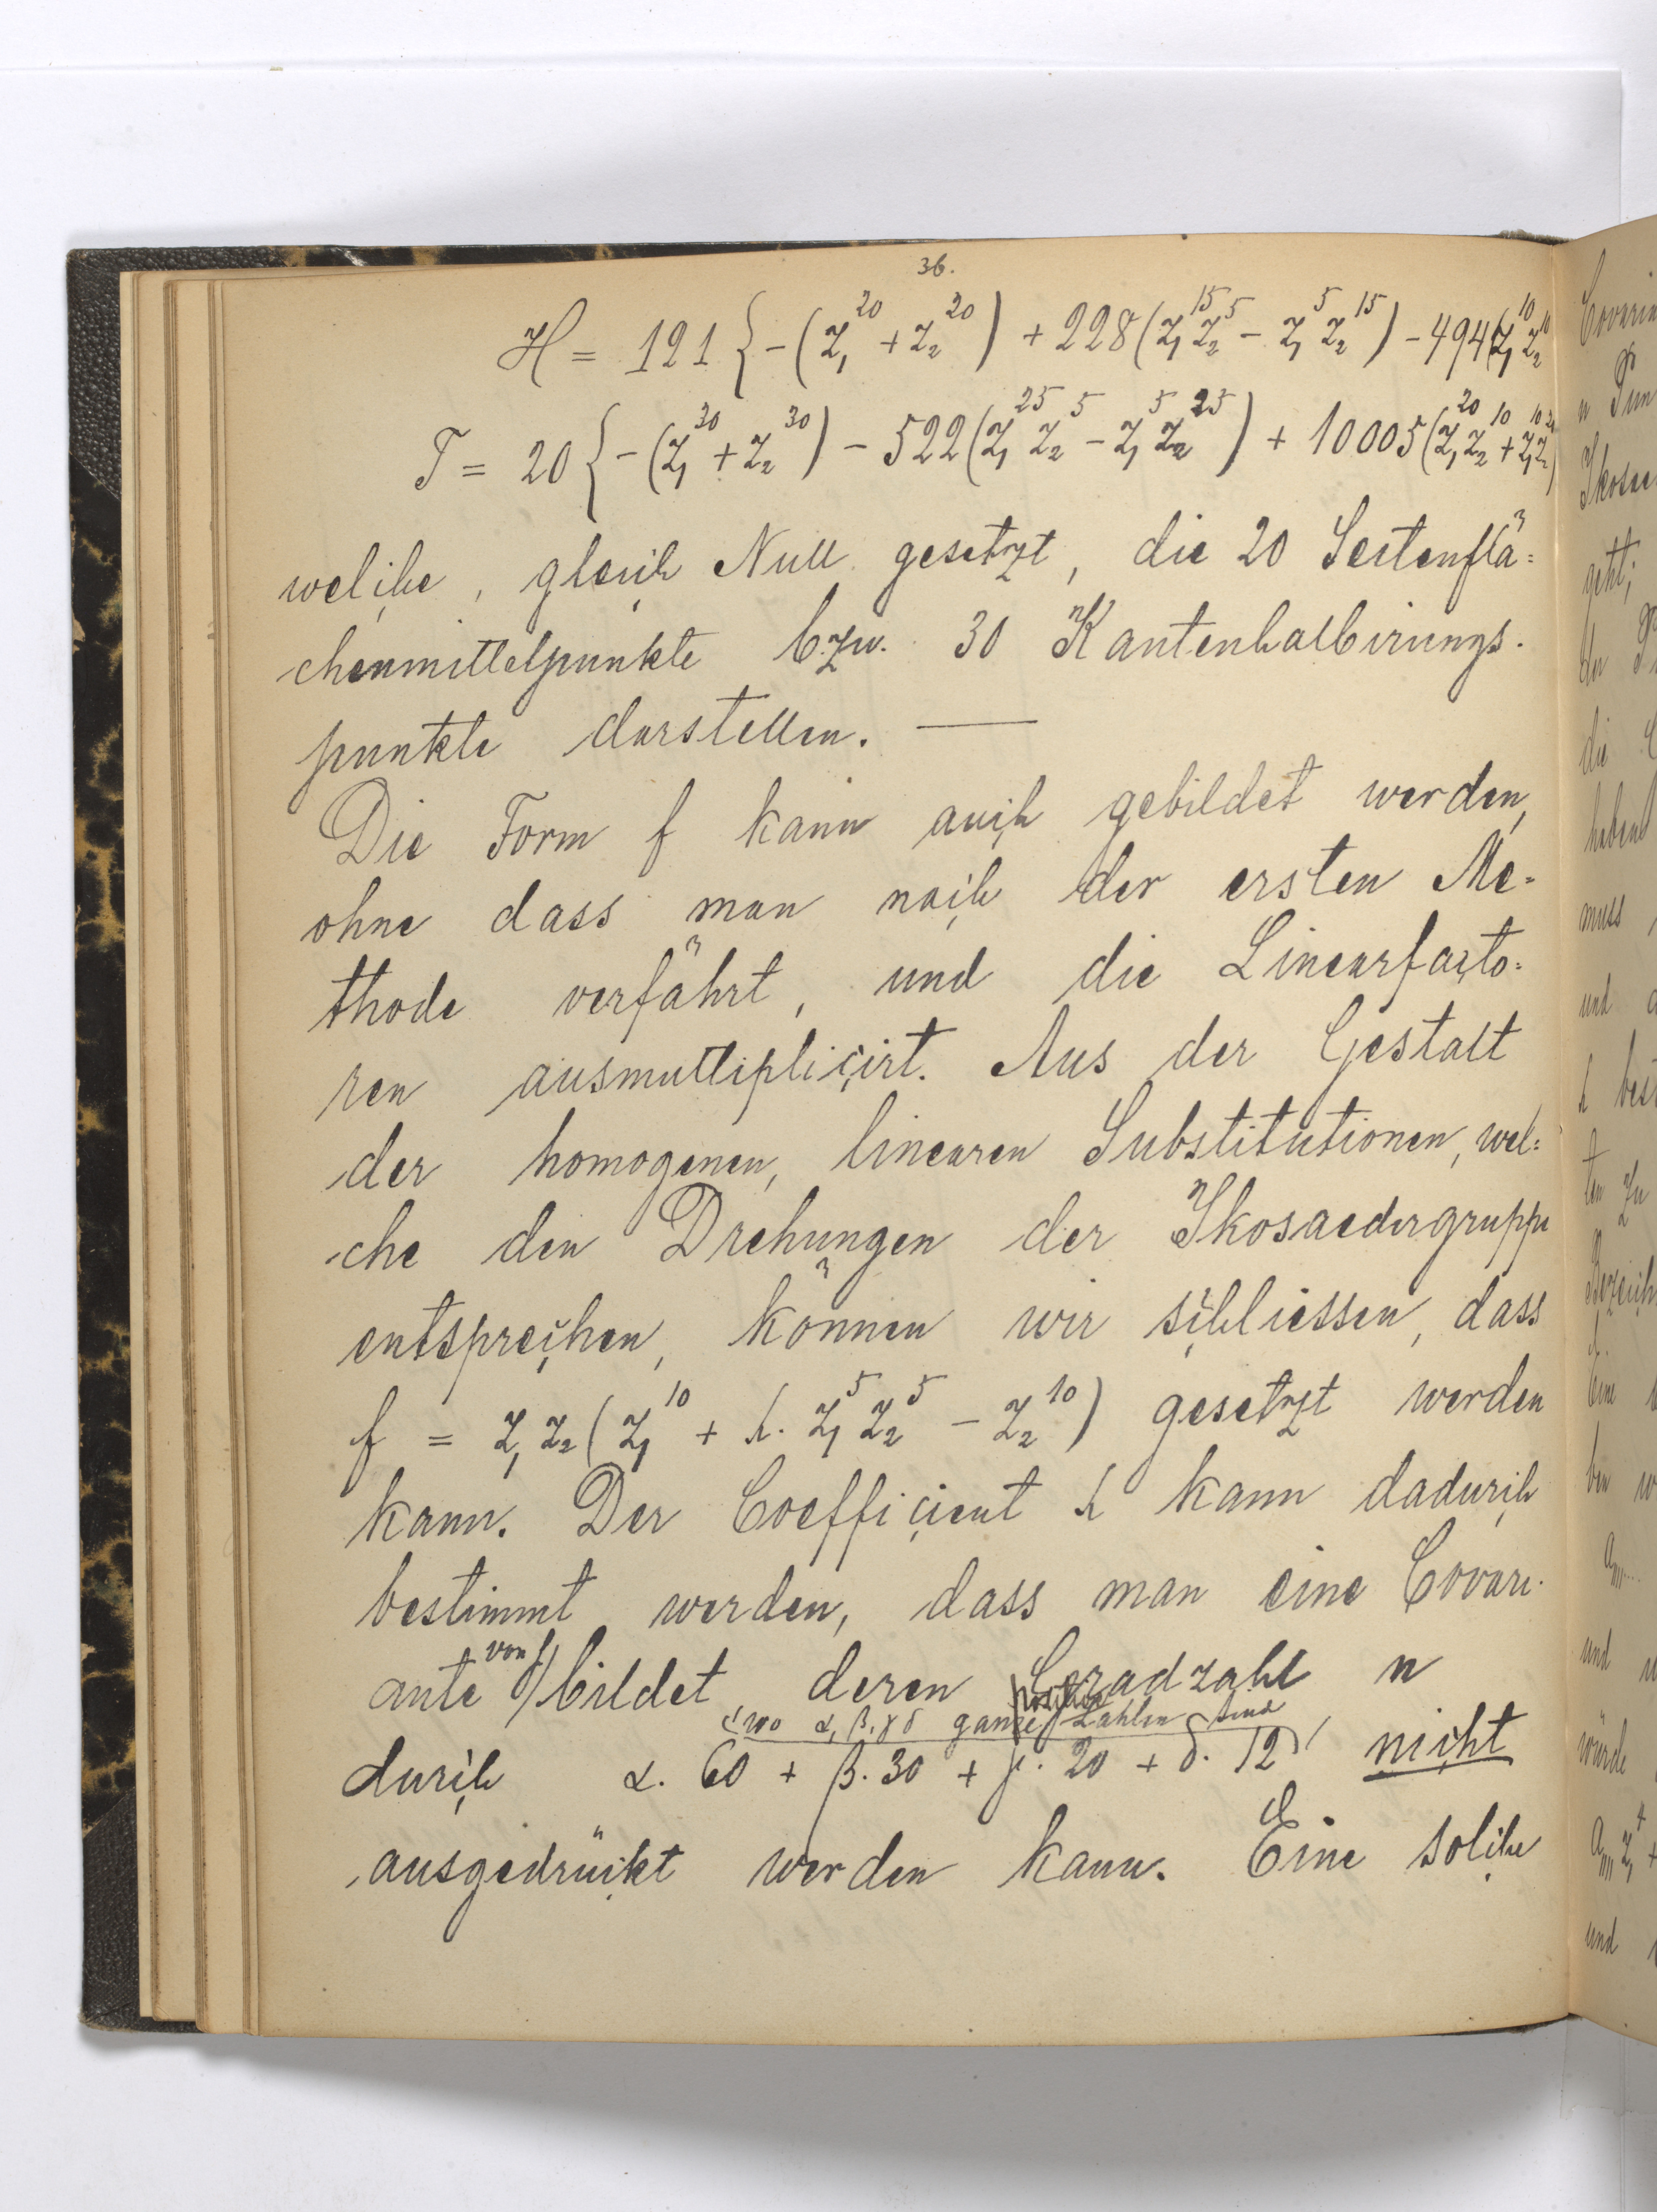 36.
H = 121 { - (z₁²⁰ + z₂²⁰) + 228 (z₁¹⁵ z₂⁵ - z₁⁵ z₂¹⁵) - 494 (z₁¹⁰ z₂¹⁰
T = 20 { - (z₁³⁰ + z₂³⁰) - 522 (z₁²⁵ z₂⁵ - z₁⁵ z₂²⁵) + 10005 (z₁²⁰ z₂¹⁰ + z₁¹⁰ z₂²⁰)
welche, gleich Null gesetzt, die 20 Seitenflä=
chenmittelpunkte bzw. 30 Kantenhalbirungs-
punkte darstellen. —
Die Form f kann auch gebildet werden,
ohne dass man nach der ersten Me=
thode verfährt, und die Linearfacto=
ren ausmultiplicirt. Aus der Gestalt
der homogenen, linearen Substitutionen, wel=
che den Drehungen der Ikosaedergruppe
entsprechen, können wir schliessen, dass
f = z₁ z₂ (z₁¹⁰ + h. z₁⁵ z₂⁵ - z₂¹⁰) gesetzt werden
kann. Der Coefficient h kann dadurch
bestimmt werden, dass man eine Covari-
ante von f bildet, deren Gradzahl n
(wo α, β, γ δ ganze positive Zahlen sind)
durch α. 60 + β. 30 + γ. 20 + δ. 12 nicht
ausgedrückt werden kann. Eine solche